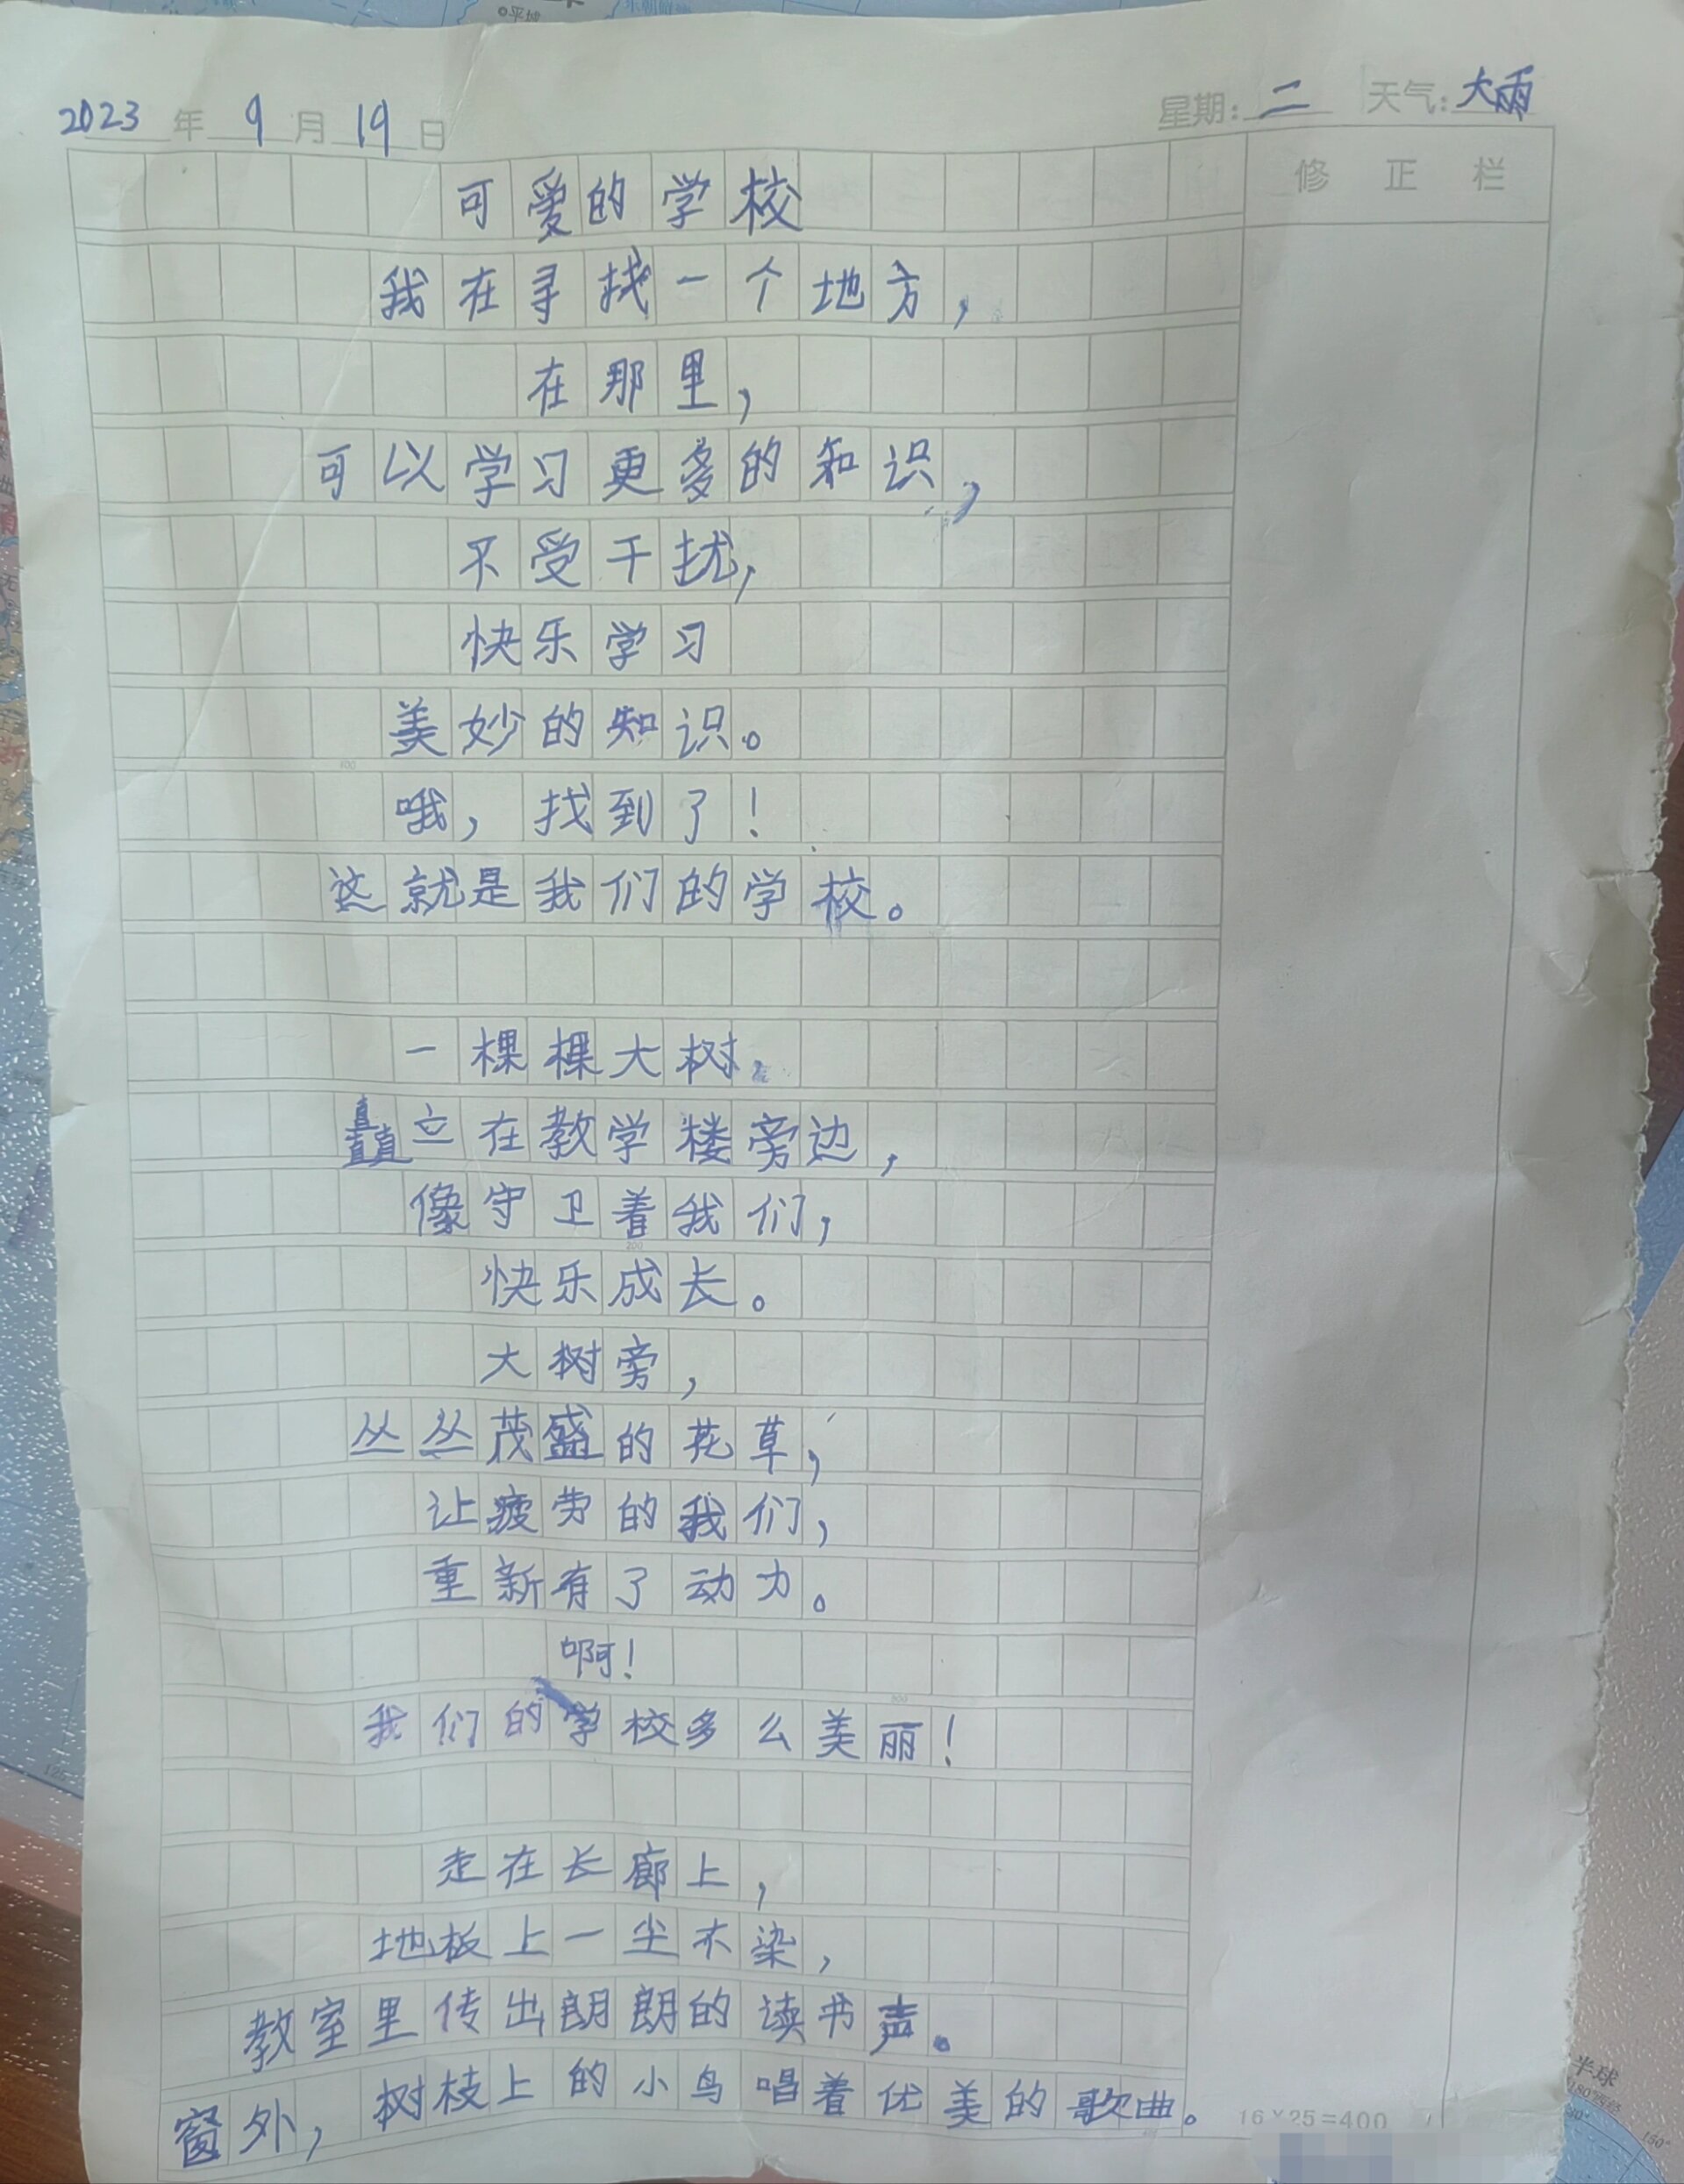 2023年9月19日 星期:二 天气:大雨
修正栏
可爱的学校
我在寻找一个地方,
在那里,
可以学习更多的知识,
不受干扰,
快乐学习
美妙的知识。
100
哦,找到了!
这就是我们的学校。
一棵棵大树,
矗立在教学楼旁边,
像守卫着我们,
200
快乐成长。
大树旁,
丛丛茂盛的花草,
让疲劳的我们,
重新有了动力。
啊!
300
我们的学校多么美丽!
走在长廊上,
地板上一尘不染,
教室里传出朗朗的读书声。
窗外,树枝上的小鸟唱着优美的歌曲。
16×25=400
平城
半球